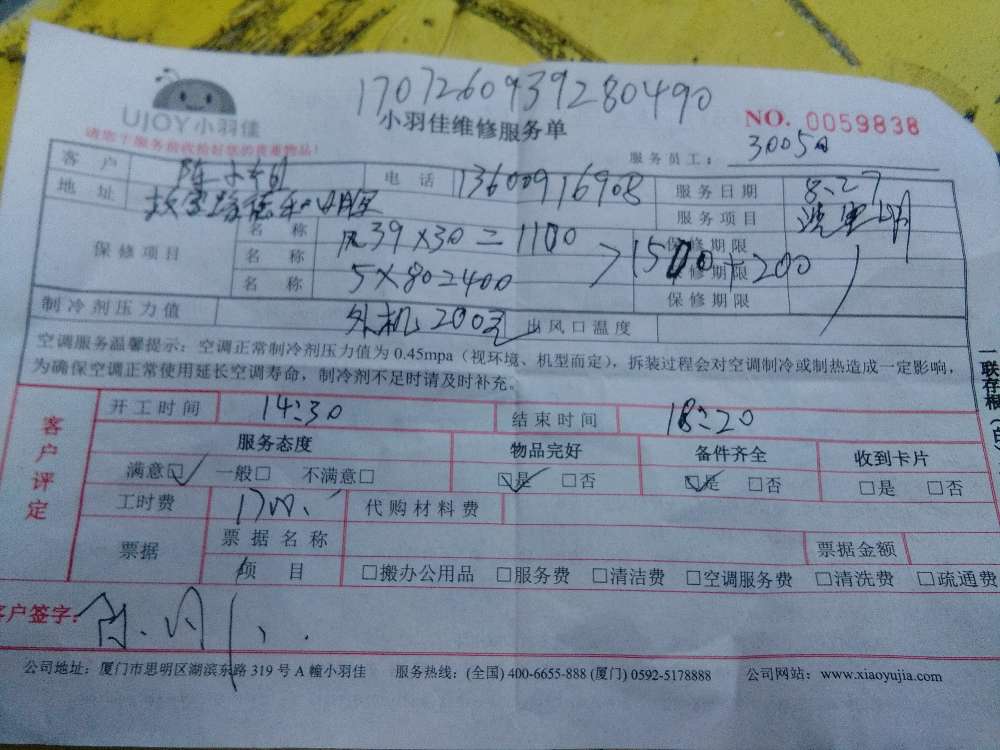 1707260939280490
UJOY小羽佳
小羽佳维修服务单
NO. 0059838
请您于服务前收拾好您的贵重物品!
服务员工: 3005
客户 陈小
电话 13600916908
服务日期 8.27
地址
服务项目 洗空调
保修项目
名称 风39×30=1100
保修期限
名称 5×80=400
1500+200
保修期限
名称
保修期限
制冷剂压力值 外机200元
出风口温度
空调服务温馨提示:空调正常制冷剂压力值为0.45mpa(视环境、机型而定),拆装过程会对空调制冷或制热造成一定影响,
为确保空调正常使用延长空调寿命,制冷剂不足时请及时补充。
一联存根(白
客户评定
开工时间 14:30
结束时间 18:20
服务态度
物品完好
备件齐全
收到卡片
满意☑ 一般□ 不满意□
☑是 □否
☑是 □否
□是 □否
工时费 1700
代购材料费
票据
票据名称
票据金额
项目
□搬办公用品 □服务费 □清洁费 □空调服务费 □清洗费 □疏通费
客户签字:
公司地址:厦门市思明区湖滨东路319号A幢小羽佳 服务热线:(全国) 400-6655-888 (厦门) 0592-5178888 公司网站:www.xiaoyujia.com